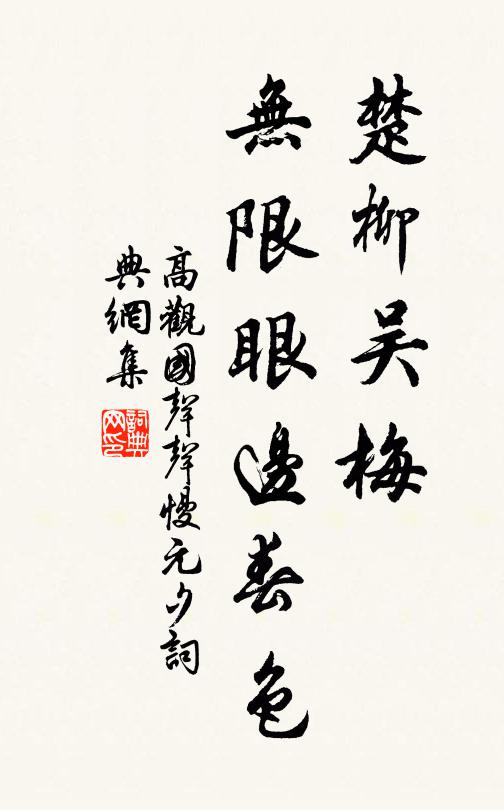 楚柳吴梅
無限眼邊春色
高觀國聲聲慢元夕詞
典網集
詞典網印